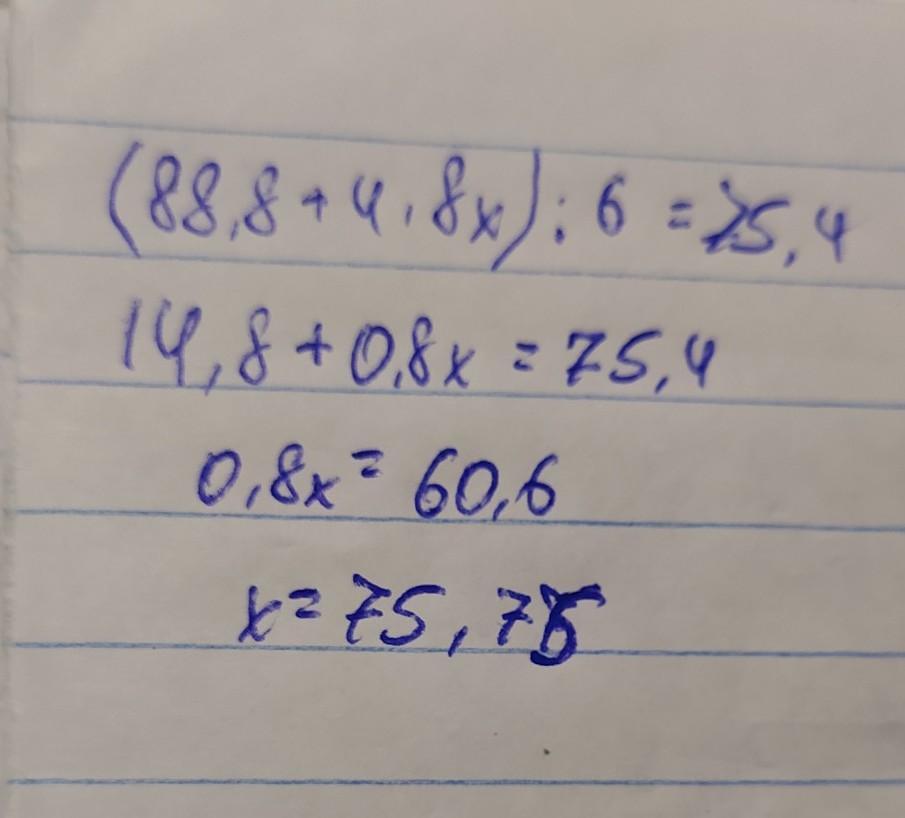 (88,8+4,8x):6=75,4
14,8+0,8x=75,4
0,8x=60,6
x=75,75